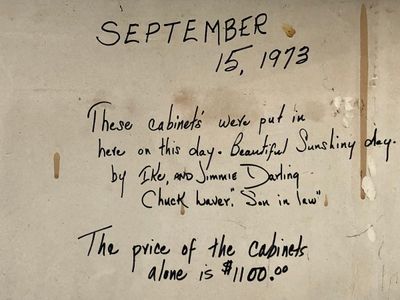 SEPTEMBER
15, 1973
These cabinets were put in
here on this day. Beautiful Sunshiny day.
by Ike, AND Jimmie Darling
Chuck Waver. "Son in law"
The price of the cabinets
alone is $1100.00